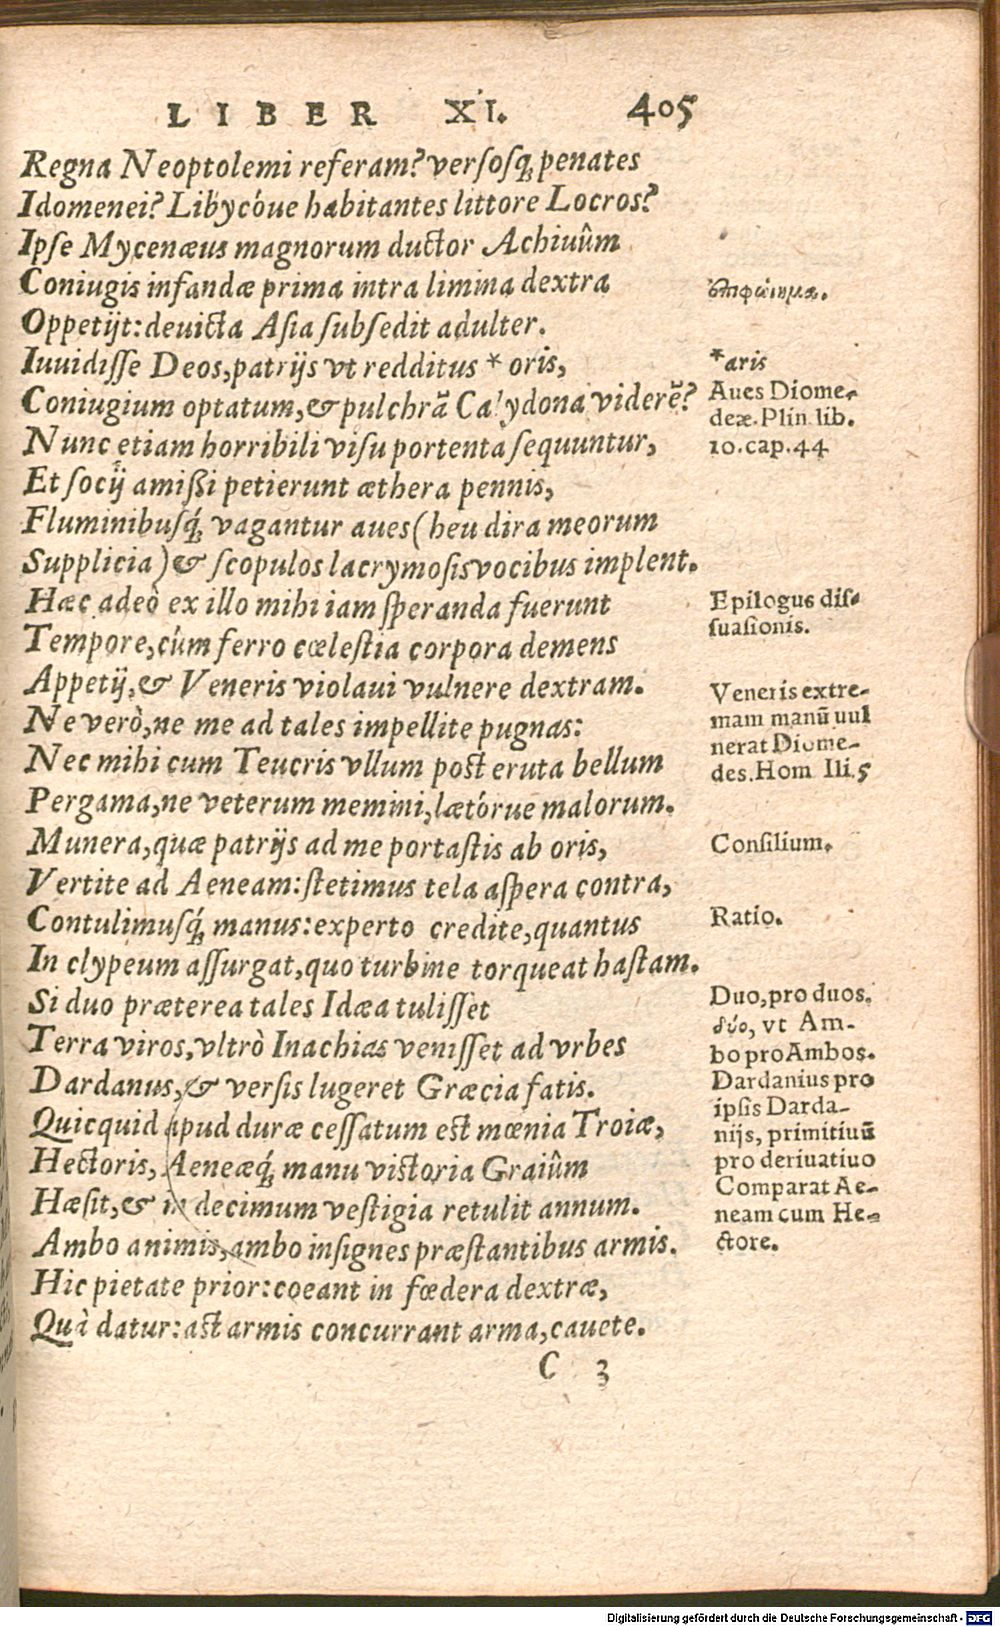 LIBER XI. 405
Regna Neoptolemi referam? versosq́; penates
Idomenei? Libycóue habitantes littore Locros?
Ipse Mycenæus magnorum ductor Achiuûm
Coniugis infandæ prima intra limina dextra
Oppetijt: deuicta Asia subsedit adulter.
Inuidisse Deos, patrijs vt redditus * oris,
Coniugium optatum, & pulchrā Calydona viderē?
Nunc etiam horribili visu portenta sequuntur,
Et socij amißi petierunt æthera pennis,
Fluminibusq́; vagantur aues (heu dira meorum
Supplicia) & scopulos lacrymosis vocibus implent.
Hæc adeò ex illo mihi iam speranda fuerunt
Tempore, cùm ferro cœlestia corpora demens
Appetij, & Veneris violaui vulnere dextram.
Ne verò, ne me ad tales impellite pugnas:
Nec mihi cum Teucris vllum post eruta bellum
Pergama, ne veterum memini, lætórue malorum.
Munera, quæ patrijs ad me portastis ab oris,
Vertite ad Aeneam: stetimus tela aspera contra,
Contulimusq́; manus: experto credite, quantus
In clypeum assurgat, quo turbine torqueat hastam.
Si duo præterea tales Idæa tulisset
Terra viros, vltrò Inachias venisset ad vrbes
Dardanus, & versis lugeret Græcia fatis.
Quicquid apud duræ cessatum est mœnia Troiæ,
Hectoris, Aeneæq́; manu victoria Graiûm
Hæsit, & in decimum vestigia retulit annum.
Ambo animis, ambo insignes præstantibus armis.
Hic pietate prior: coeant in fœdera dextræ,
Quà datur: ast armis concurrant arma, cauete.
C 3
*aris
Aues Diome-
deæ. Plin. lib.
10. cap. 44
Epilogus dis-
suasionis.
Veneris extre-
mam manū uul
nerat Diome-
des. Hom Ili. 5
Consilium.
Ratio.
Duo, pro duos.
δύο, vt Am-
bo pro Ambos.
Dardanius pro
ipsis Darda-
nijs, primitiuū
pro deriuatiuo
Comparat Ae-
neam cum He-
ctore.
Digitalisierung gefördert durch die Deutsche Forschungsgemeinschaft - DFG